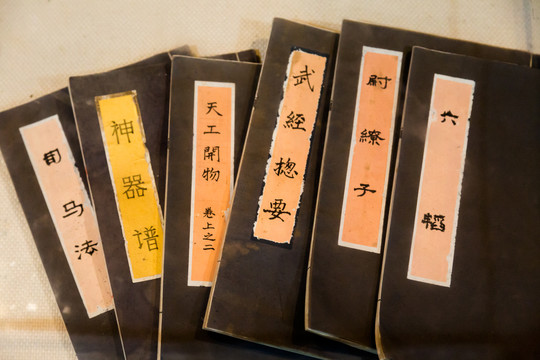 司马法
神器谱
天工開物 卷上之二
武經揔要
尉繚子
六韜